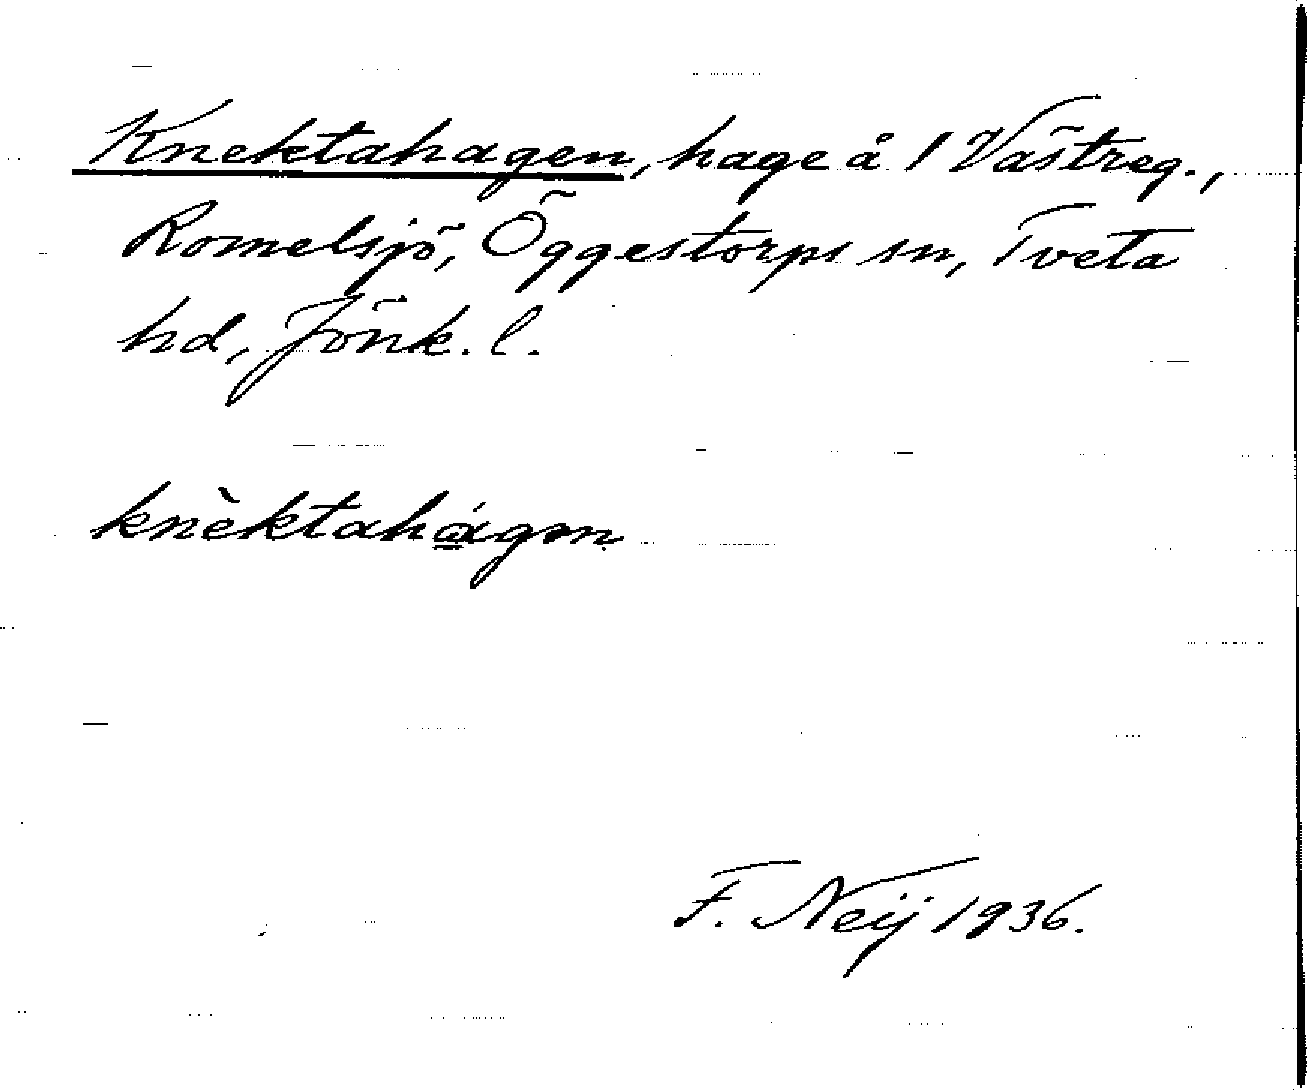 Knektahagen, hage å 1 Västreg.,
Romelsjö, Öggestorps sn, Tveta
hd, Jönk. l.
knèktahágən
F. Neij 1936.